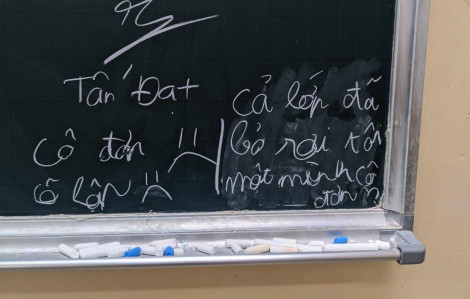 Tấn Đạt
Cô đơn :(
ế lận :(
cả lớp đã
bỏ rơi tôi
một mình cô
đơn